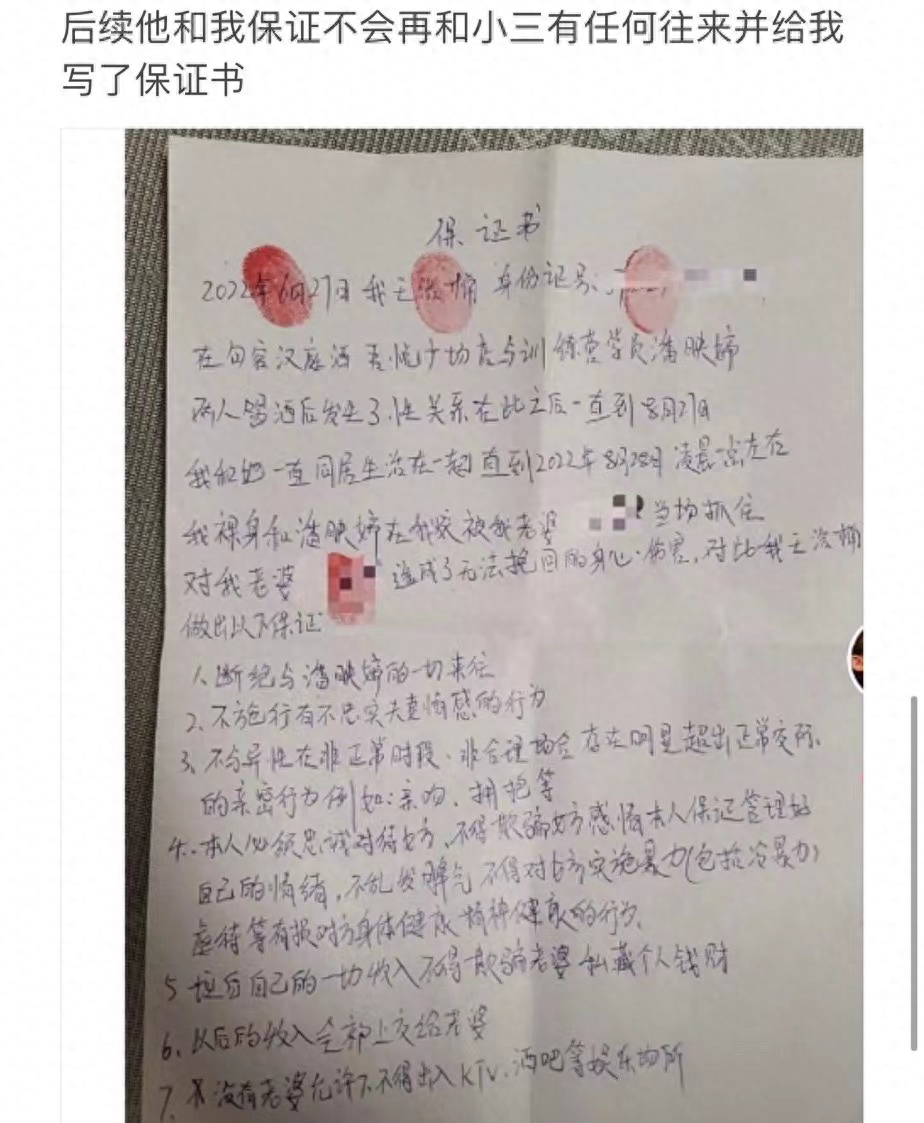 后续他和我保证不会再和小三有任何往来并给我
写了保证书
保证书
2022年6月27日 我王 身份证号:
在句容汉庭酒 吾悦广场店与训练营学员潘映婷
两人喝酒后发生了性关系在此之后一直到8月27日
我和她一直同居生活在一起直到2022年8月28日凌晨 左右
我裸身和潘映婷在我家被我老婆 当场抓住
对我老婆 造成了无法挽回的身心伤害,对此我王
做出以下保证
1、断绝与潘映婷的一切来往
2、不施行有不忠实夫妻情感的行为
3、不与异性在非正常时段、非合理场合存在明显超出正常交际
的亲密行为例如:亲吻、拥抱等
4、本人必须忠诚对待对方、不得欺骗对方感情本人保证管理好
自己的情绪,不乱发脾气 不得对对方实施暴力(包括冷暴力)
虐待等有损对方身体健康 精神健康的行为
5 坦白自己的一切收入不得欺骗老婆 私藏个人钱财
6、以后的收入全部上交给老婆
7、 没有老婆允许下不得出入KTV、酒吧等娱乐场所